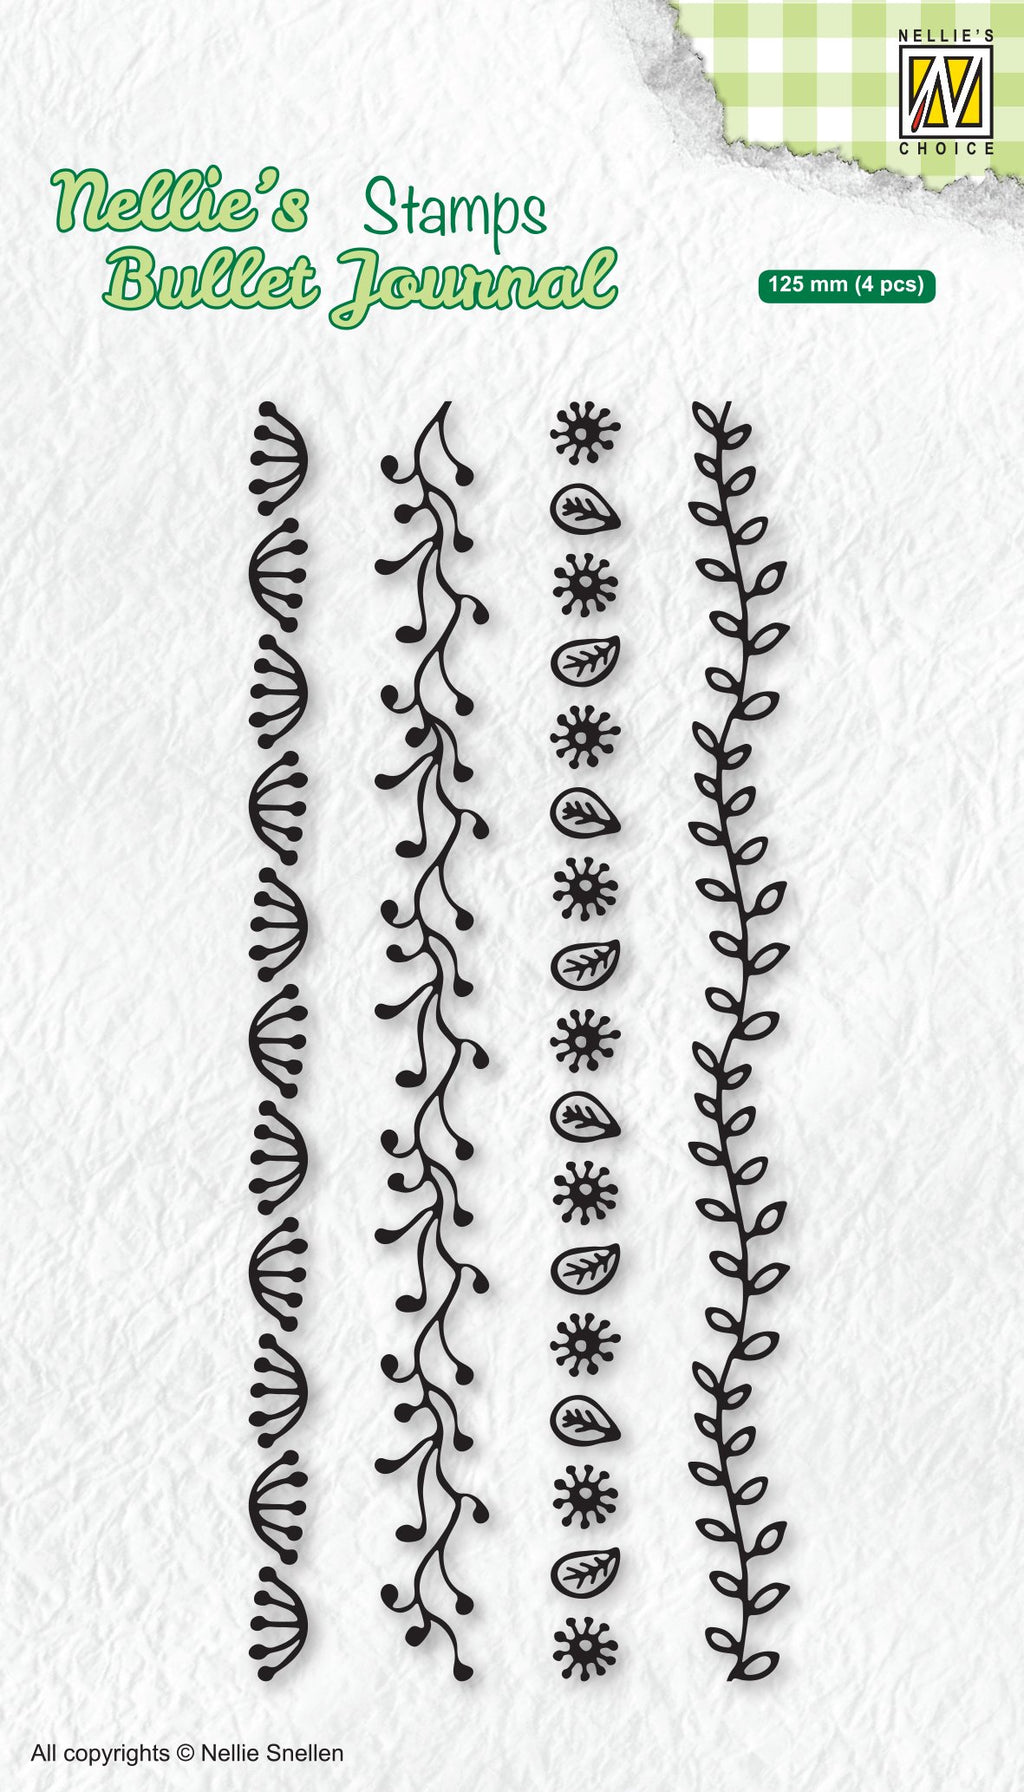 NELLIE'S
CHOICE
Nellie's Stamps
Bullet Journal
125 mm (4 pcs)
All copyrights © Nellie Snellen